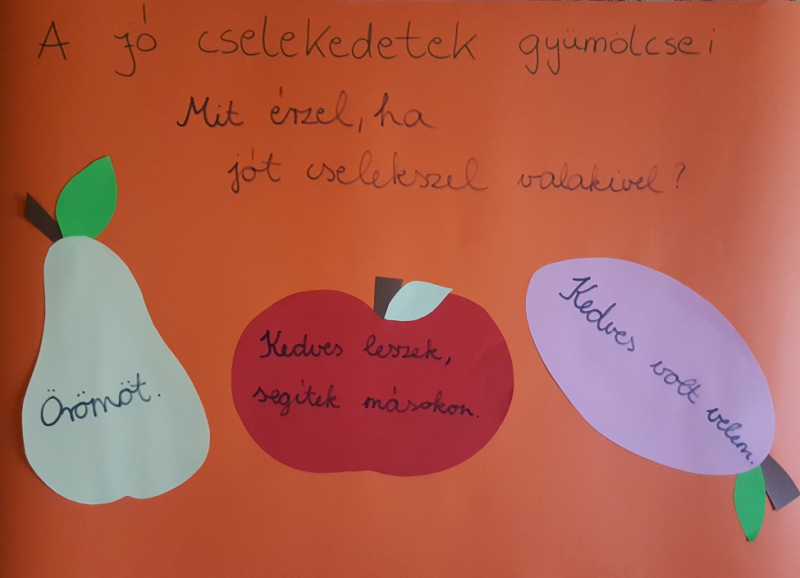 A jó cselekedetek gyümölcsei
Mit érzel, ha
jót cselekszel valakivel?
Örömöt.
Kedves leszek,
segítek másokon.
Kedves volt velem.